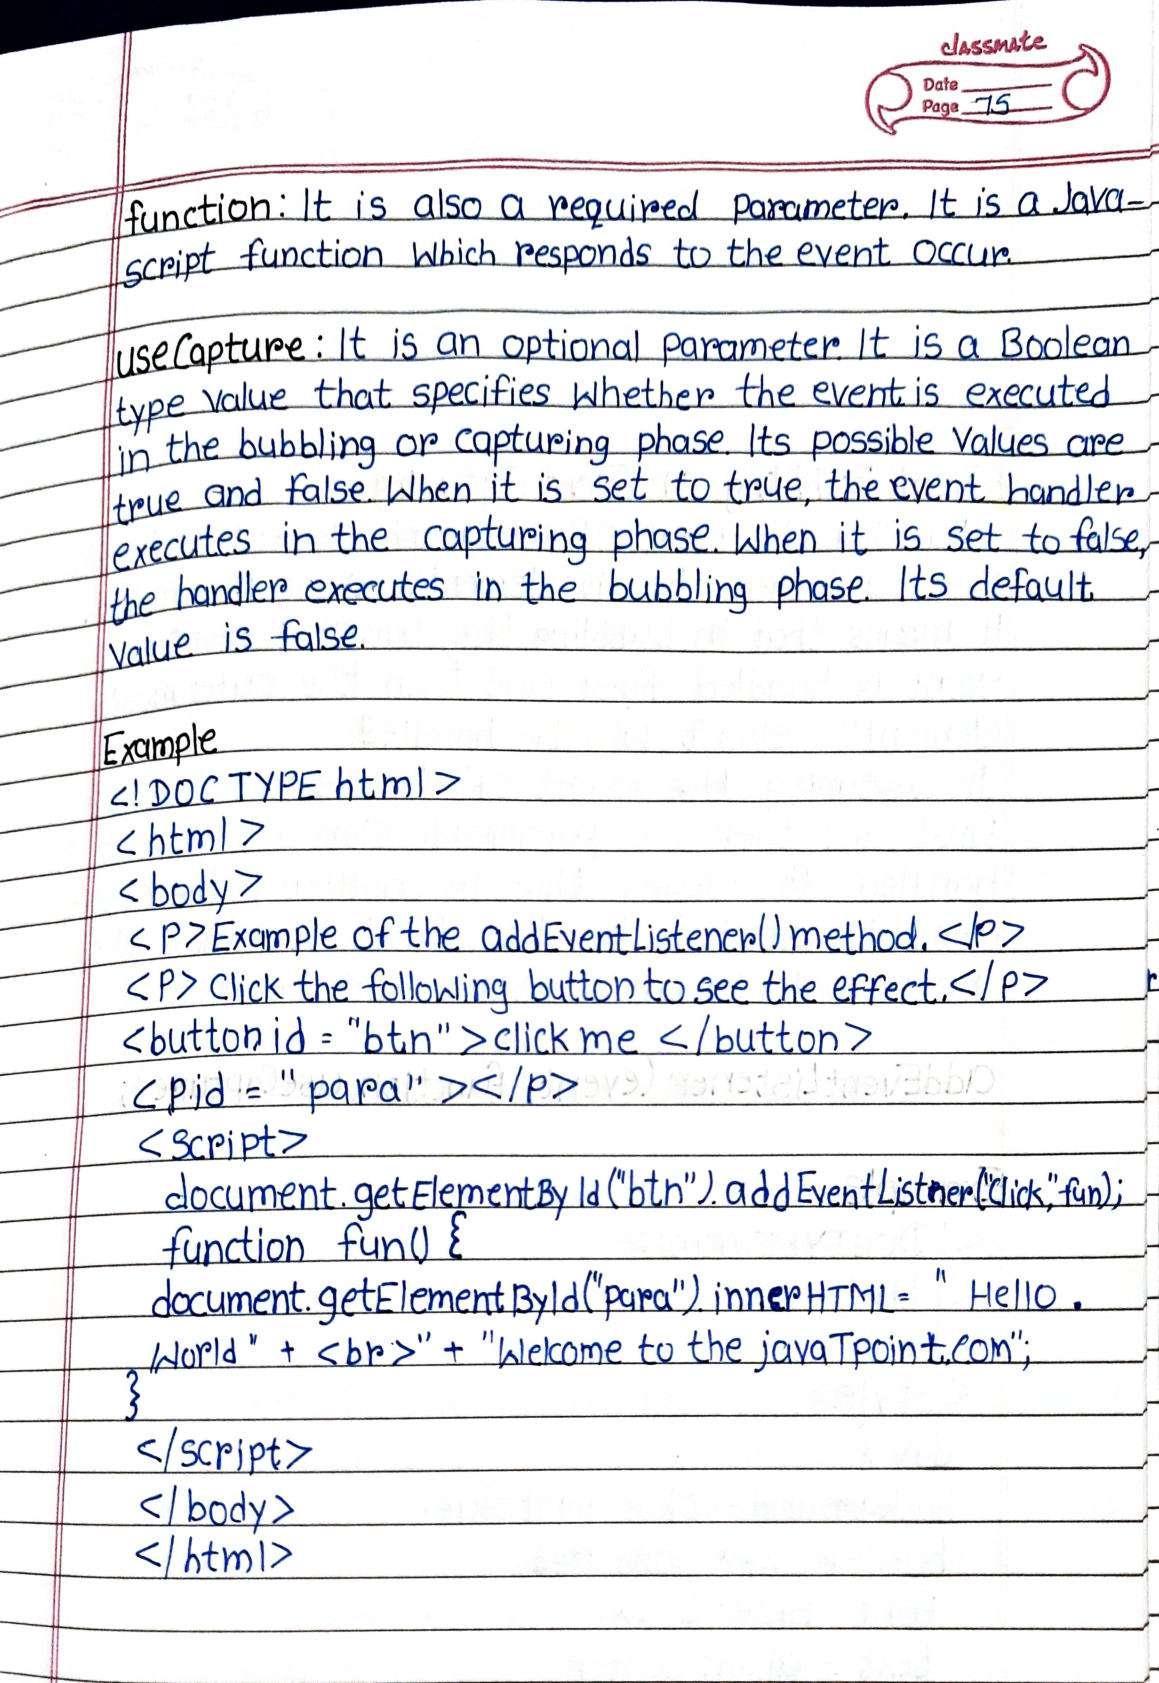 classmate
Date
Page 75
function: It is also a required parameter. It is a Java-
script function which responds to the event occur.
useCapture: It is an optional parameter. It is a Boolean
type value that specifies whether the event is executed
in the bubbling or capturing phase. Its possible values are
true and false. When it is set to true, the event handler
executes in the capturing phase. When it is set to false,
the handler executes in the bubbling phase. Its default
value is false.
Example
<!DOCTYPE html>
<html>
<body>
<P>Example of the addEventListener() method.</p>
<P> Click the following button to see the effect.</p>
<button id = "btn">click me </button>
<p id = "para"></p>
<script>
document.getElementById("btn").addEventListner("click", fun);
function fun() {
document.getElementById("para").innerHTML = " Hello .
World" + <br>" + "Welcome to the javaTpoint.com";
}
</script>
</body>
</html>